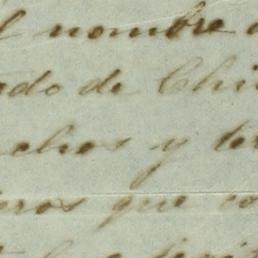 l nombre d
ado de Chi
echos y de
eros que co